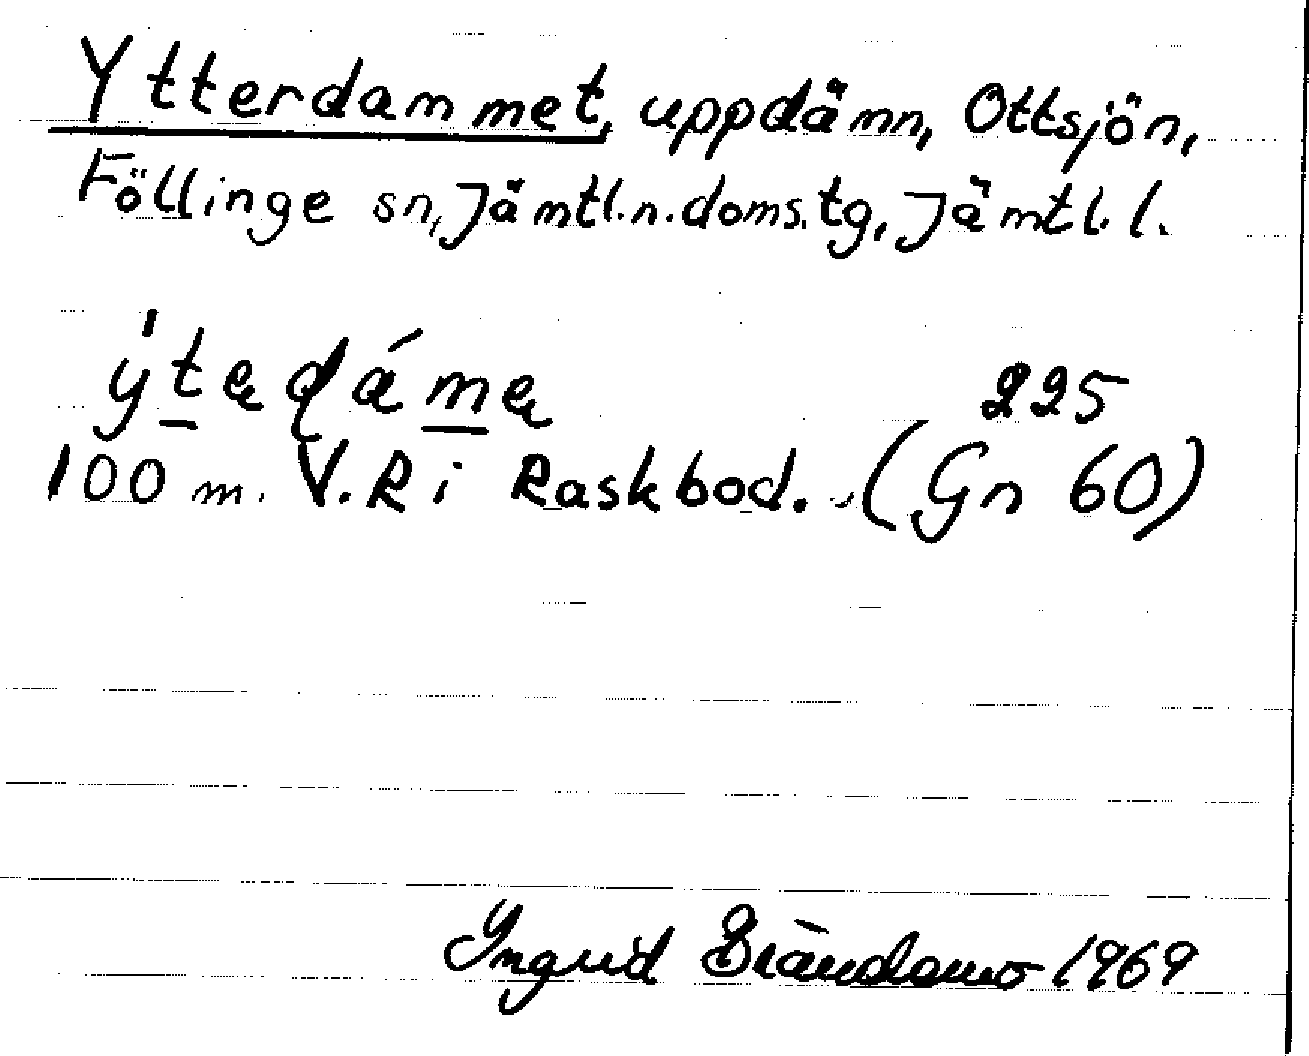 Ytterdammet, uppdämn, Ottsjön,
Föllinge sn, Jämtl.n.doms.tg, Jämtl.l.
ýtędámę
225
100 m. V.R i Raskbod. (Gn 60)
Ingrid Brändemo 1969